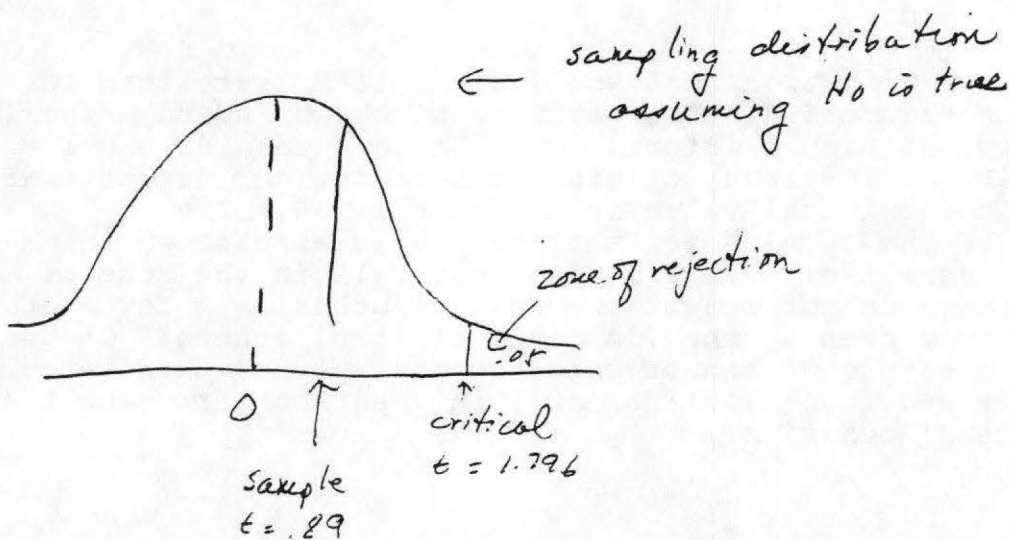 ← sampling distribution
assuming Ho is true
zone of rejection
.05
0
critical
t = 1.796
sample
t = .89